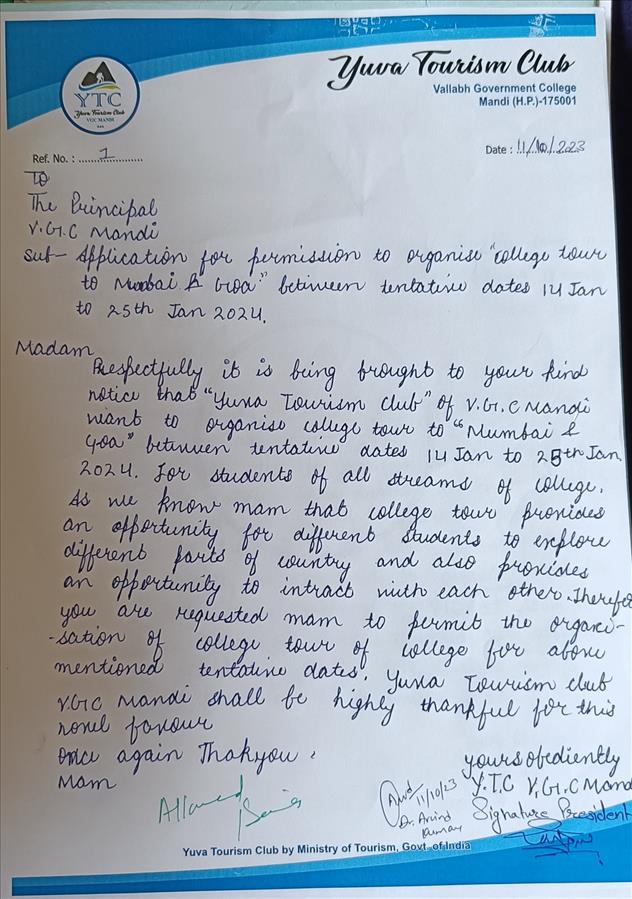 Yuva Tourism Club
Vallabh Government College
Mandi (H.P.)-175001
YTC
Yuva Tourism Club
VGC MANDI
Ref. No. : 1
Date : 11/10/2023
To
The Principal
V.G.C Mandi
Sub- Application for permission to organise "college tour
to Mumbai & Goa" between tentative dates 14 Jan
to 25th Jan 2024.
Madam
Respectfully it is being brought to your kind
notice that "Yuva Tourism Club" of V.G.C Mandi
want to organise college tour to "Mumbai &
Goa" between tentative dates 14 Jan to 25th Jan
2024. For students of all streams of college.
As we know mam that college tour provides
an opportunity for different students to explore
different parts of country and also provides
an opportunity to intract with each other. Therefo
you are requested mam to permit the organi-
-sation of college tour of college for above
mentioned tentative dates. Yuva Tourism club
V.G.C Mandi shall be highly thankful for this
novel favour
Once again Thakyou.
Mam
yours obediently
Y.T.C V.G.C Mandi
Signature President
Allowed
11/10/23
Dr. Arvind
Kumar
Yuva Tourism Club by Ministry of Tourism, Govt. of India